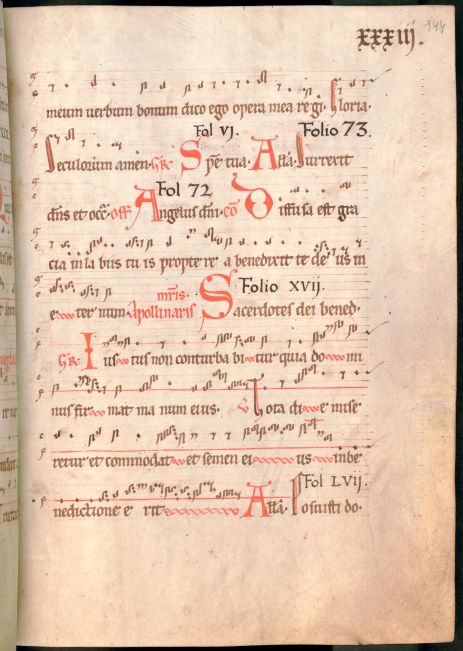 xxxiij. 144
meum uerbum bonum dico ego opera mea regi. Gloria.
Fol vj. Folio 73.
Seculorum amen. Spe tua. Alla. Surrexit
Fol 72
dns et occ. off Angelus dni. co Diffusa est gra
cia in la biis tu is propte re a benedixit te de us in
Folio xvij.
e ter num. Apollinaris mris. Sacerdotes dei bened.
Ius tus non conturba bi tur quia do mi
nus fir mat ma num eius. Tota di e mise
retur et commodat et semen ei us inbe
Fol LVij.
nedictione e rit Alla. Posuisti do.